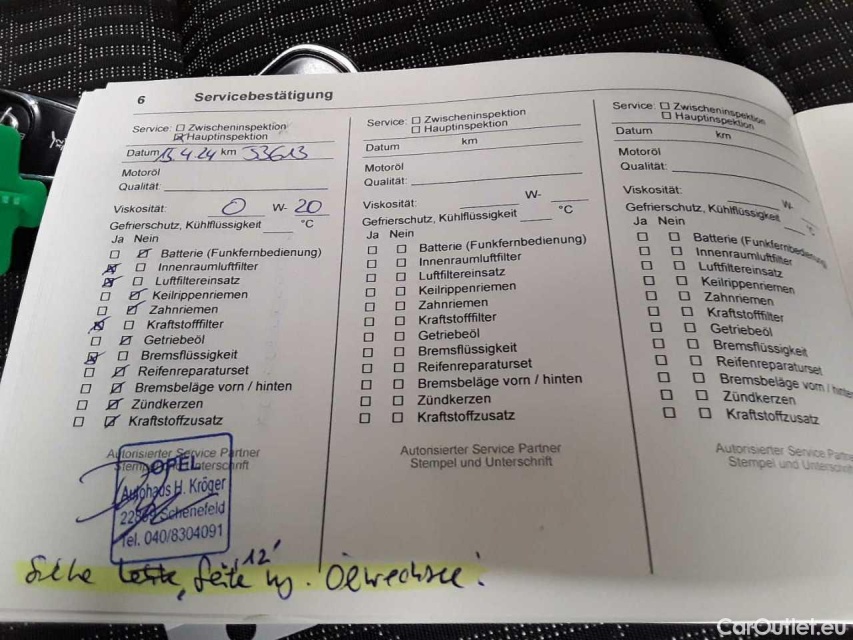 6 Servicebestätigung
Service: Zwischeninspektion
Hauptinspektion
Datum 4.24 km 33613
Motoröl
Qualität:
Viskosität: 0 W- 20
Gefrierschutz, Kühlflüssigkeit °C
Ja Nein
Batterie (Funkfernbedienung)
Innenraumluftfilter
Luftfiltereinsatz
Keilrippenriemen
Zahnriemen
Kraftstofffilter
Getriebeöl
Bremsflüssigkeit
Reifenreparaturset
Bremsbeläge vorn / hinten
Zündkerzen
Kraftstoffzusatz
Autorisierter Service Partner
Stempel und Unterschrift
OPEL
Autohaus H. Kröger
Schenefeld
Tel. 040/8304091
Siehe letzte, Seite "12" wg. Ölwechsel!
Service: Zwischeninspektion
Hauptinspektion
Datum km
Motoröl
Qualität:
Viskosität: W-
Gefrierschutz, Kühlflüssigkeit °C
Ja Nein
Batterie (Funkfernbedienung)
Innenraumluftfilter
Luftfiltereinsatz
Keilrippenriemen
Zahnriemen
Kraftstofffilter
Getriebeöl
Bremsflüssigkeit
Reifenreparaturset
Bremsbeläge vorn / hinten
Zündkerzen
Kraftstoffzusatz
Autorisierter Service Partner
Stempel und Unterschrift
Service: Zwischeninspektion
Hauptinspektion
Datum km
Motoröl
Qualität:
Viskosität: W-
Gefrierschutz, Kühlflüssigkeit °C
Ja Nein
Batterie (Funkfernbedienung)
Innenraumluftfilter
Luftfiltereinsatz
Keilrippenriemen
Zahnriemen
Kraftstofffilter
Getriebeöl
Bremsflüssigkeit
Reifenreparaturset
Bremsbeläge vorn / hinten
Zündkerzen
Kraftstoffzusatz
Autorisierter Service Partne
Stempel und Unterschrift
CarOutlet.eu